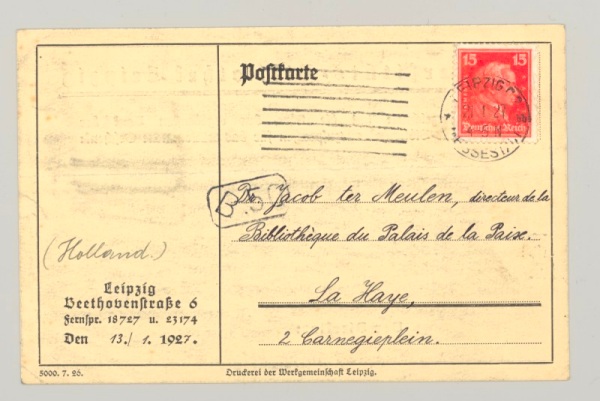 Postkarte
15 15
Deutsches Reich
LEIPZIG
MESSESTADT
B.
Dr. Jacob ter Meulen, directeur de la
Bibliothèque du Palais de la Paix.
La Haye,
2 Carnegieplein.
(Holland.)
Leipzig
Beethovenstraße 6
Fernspr. 18727 u. 23174
Den 13./1. 1927.
5000. 7. 26.
Druckerei der Werkgemeinschaft Leipzig.